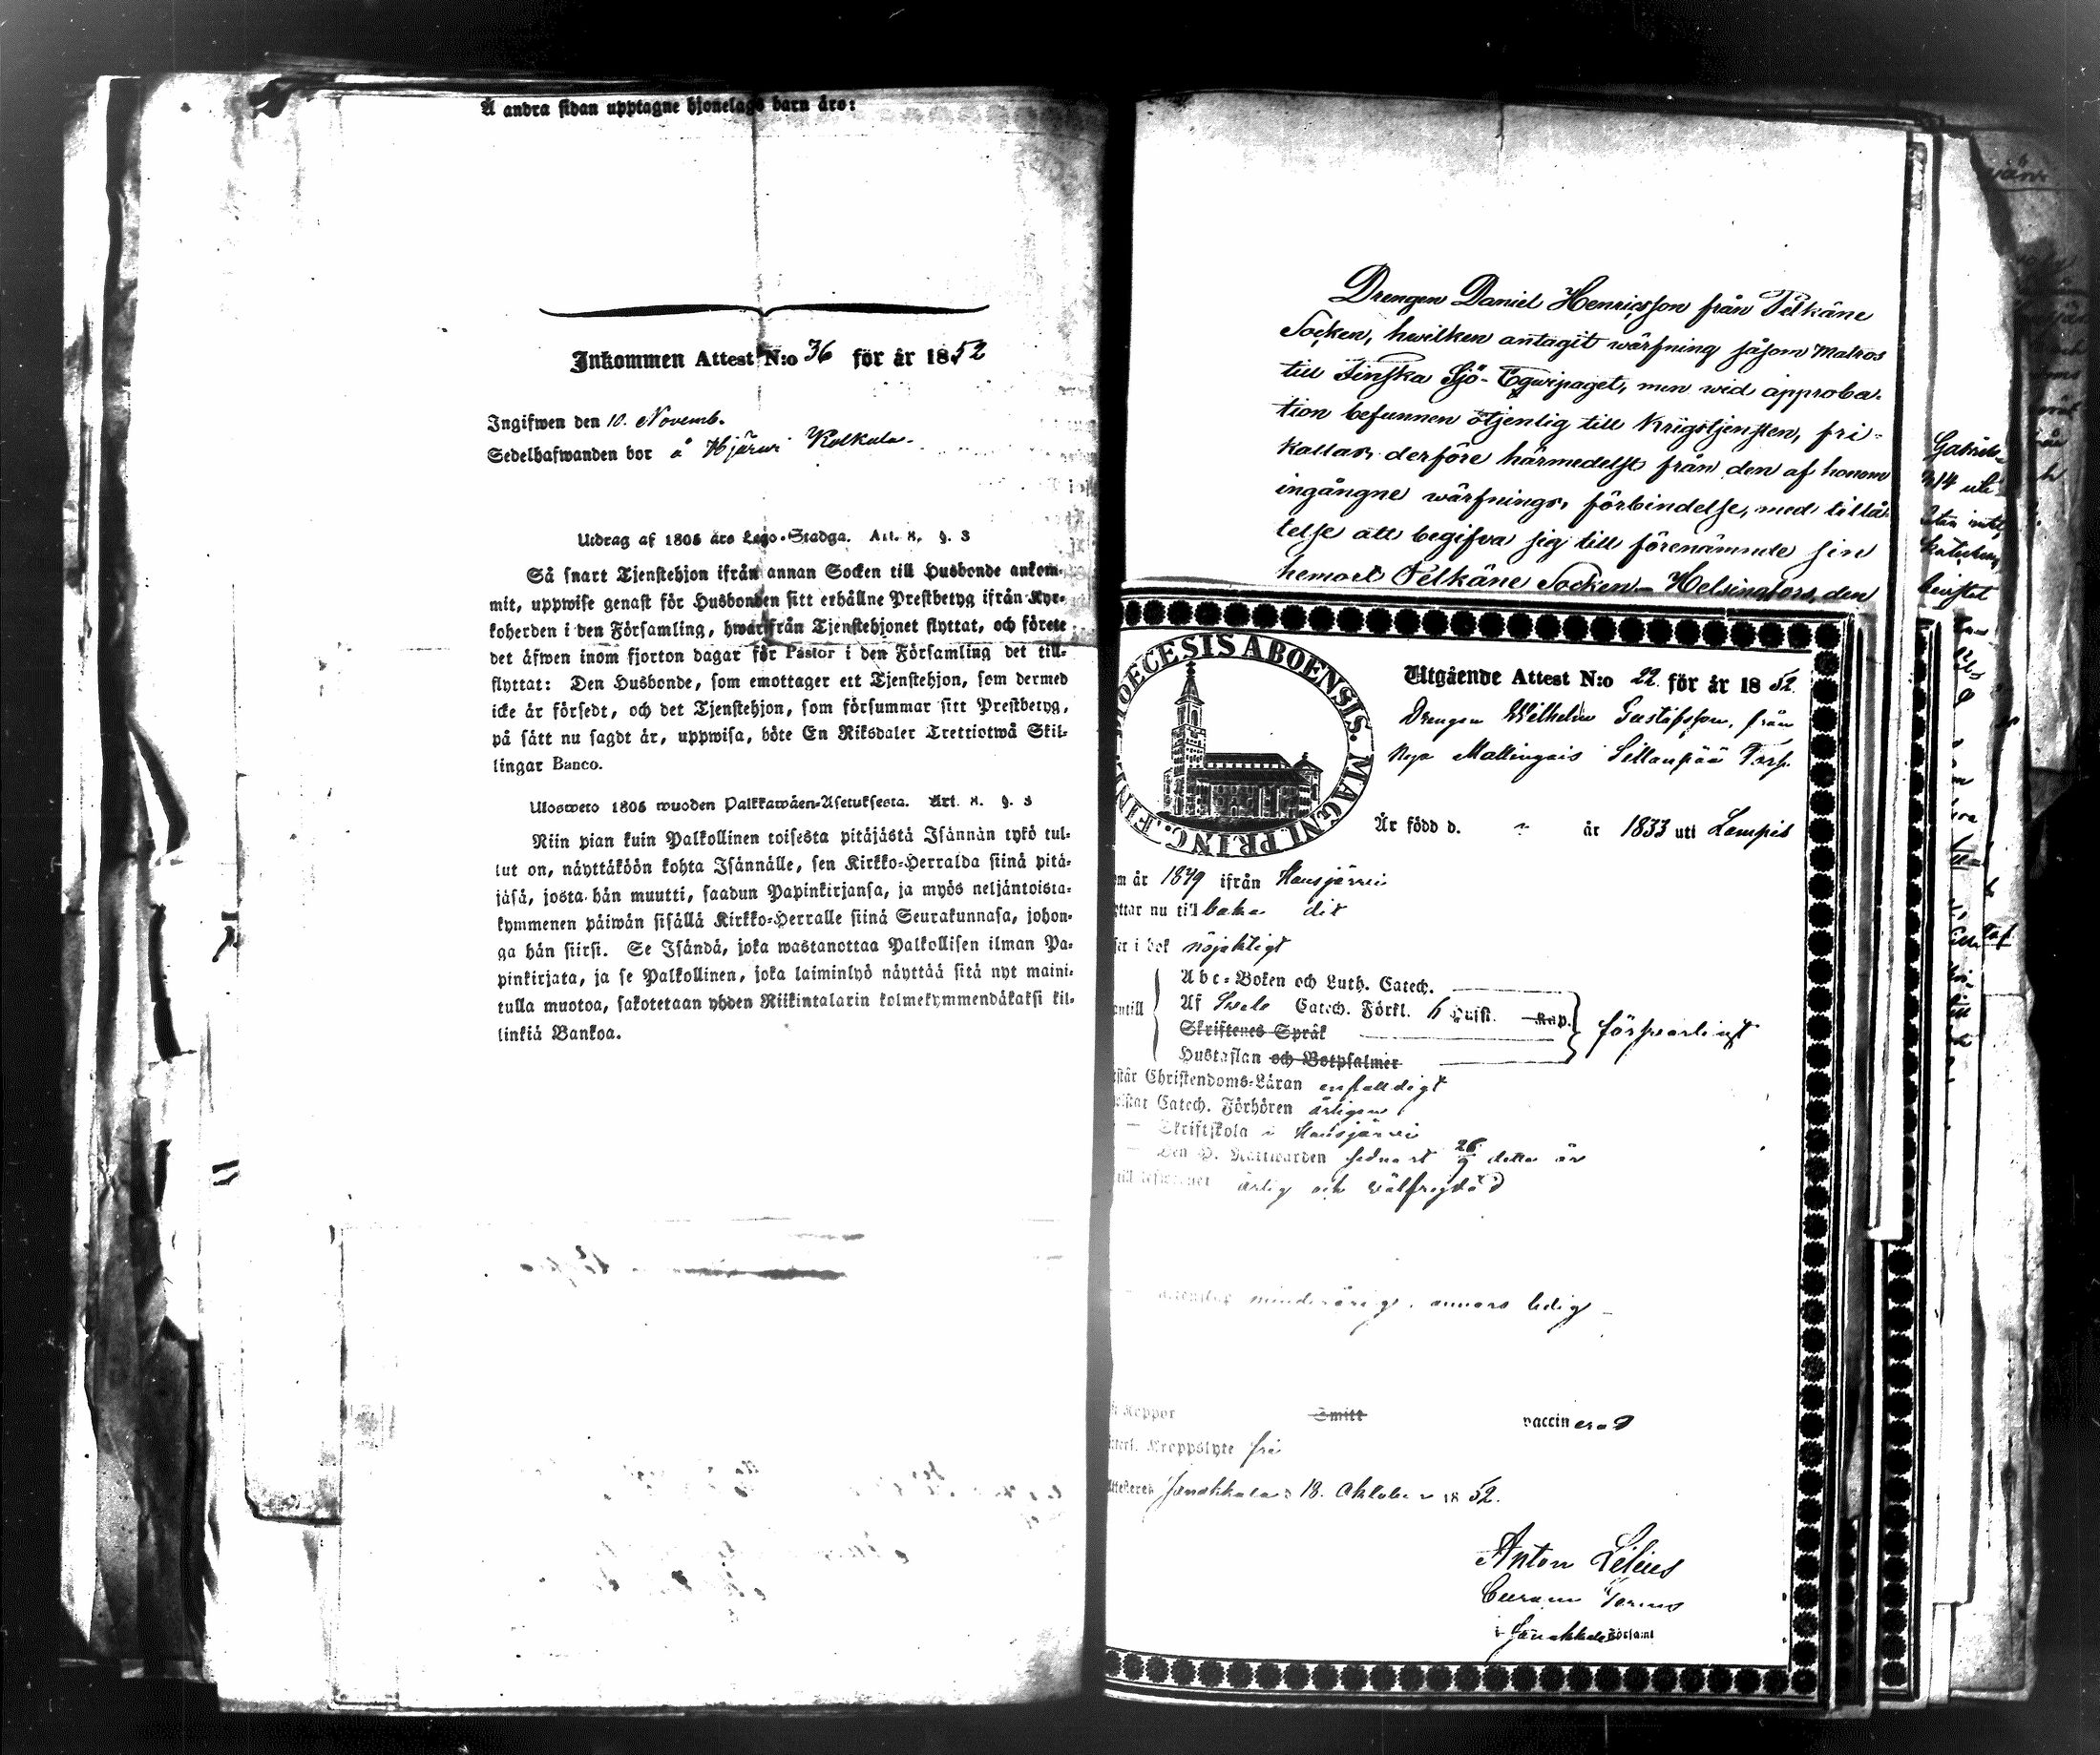 Å andra sidan upptagne hjonelags barn äro:
Inkommen Attest N:o 36 för år 1852
Ingifwen den 10. Novemb.
Sedelhafwanden bor å Hjärvi Kolkala.
Utdrag af 1805 års Lego-Stadga. Art. 8. §. 3
Så snart Tjenstehjon ifrån annan Socken till Husbonde ankom-
mit, uppwise genast för Husbonden sitt erhållne Prestbetyg ifrån Kyr-
koherden i den Församling, hwarifrån Tjenstehjonet flyttat, och förete
det äfwen inom fjorton dagar för Pastor i den Församling det till-
flyttat: Den Husbonde, som emottager ett Tjenstehjon, som dermed
icke är försedt, och det Tjenstehjon, som försummar sitt Prestbetyg,
på sätt nu sagdt är, uppwisa, böte En Riksdaler Trettiotwå Skil-
lingar Banco.
Ulosweto 1805 wuoden Palkkawäen-Asetuksesta. Art. 8. §. 3
Niin pian kuin Palkollinen toisesta pitäjästä Isännän tykö tul-
lut on, näyttäköön kohta Isännälle, sen Kirkko-Herralda siinä pitä-
jäsä, josta hän muutti, saadun Papinkirjansa, ja myös neljäntoista-
kymmenen päiwän sisällä Kirkko-Herralle siinä Seurakunnasa, johon-
ga hän siirsi. Se Isändä, joka wastanottaa Palkollisen ilman Pa-
pinkirjata, ja se Palkollinen, joka laiminlyö näyttää sitä nyt maini-
tulla muotoa, sakotetaan yhden Riikintalarin kolmekymmendäkaksi kil-
linkiä Bankoa.
Drengen Daniel Henricsson från Pelkäne
Socken, hwilken antagit wärfning såsom Matros
till Finska Sjö-Eqwipaget, men wid approba-
tion befunnen otjenlig till Krigstjensten, fri-
kallas, derföre härmedelst från den af honom
ingångne wärfnings, förbindelse, med tillå-
telse att begifva sig till förenämnde sin
hemort Pelkäne Socken. Helsingfors, den
DIOECESIS ABOENSIS. MAGNI PRINC. FINL.
Utgående Attest N:o 22 för år 1852.
Drengen Wilhelm Gustafsson, från
Mallingais Sillanpää Torp.
Är född d. " år 1833 uti Lampis
m år 1849 ifrån Hausjärvi
ttar nu tillbaka dit
ser i bok nöjaktigt
Abc-Boken och Luth. Catech.
Af Svebe Catech. Förkl. 6 Huſst. Kap.
Skriftenes Språk
antill
försvarligt
Hustaflan och Botpsalmer
står Christendoms-Läran enfaldigt
wistar Catech. Förhören årligen
— Skriftskola i Hausjärvi
— Den H. Nattwarden sednast 26/9 detta år
ärlig och välfrejdad
minderårig, annars ledig —
Koppor Smitt vaccinerad
Kroppslyte fri
Attesteras Janakkala d 18. Oktober 1852.
Anton Lilius
i Janakkala Församl
Gabriels